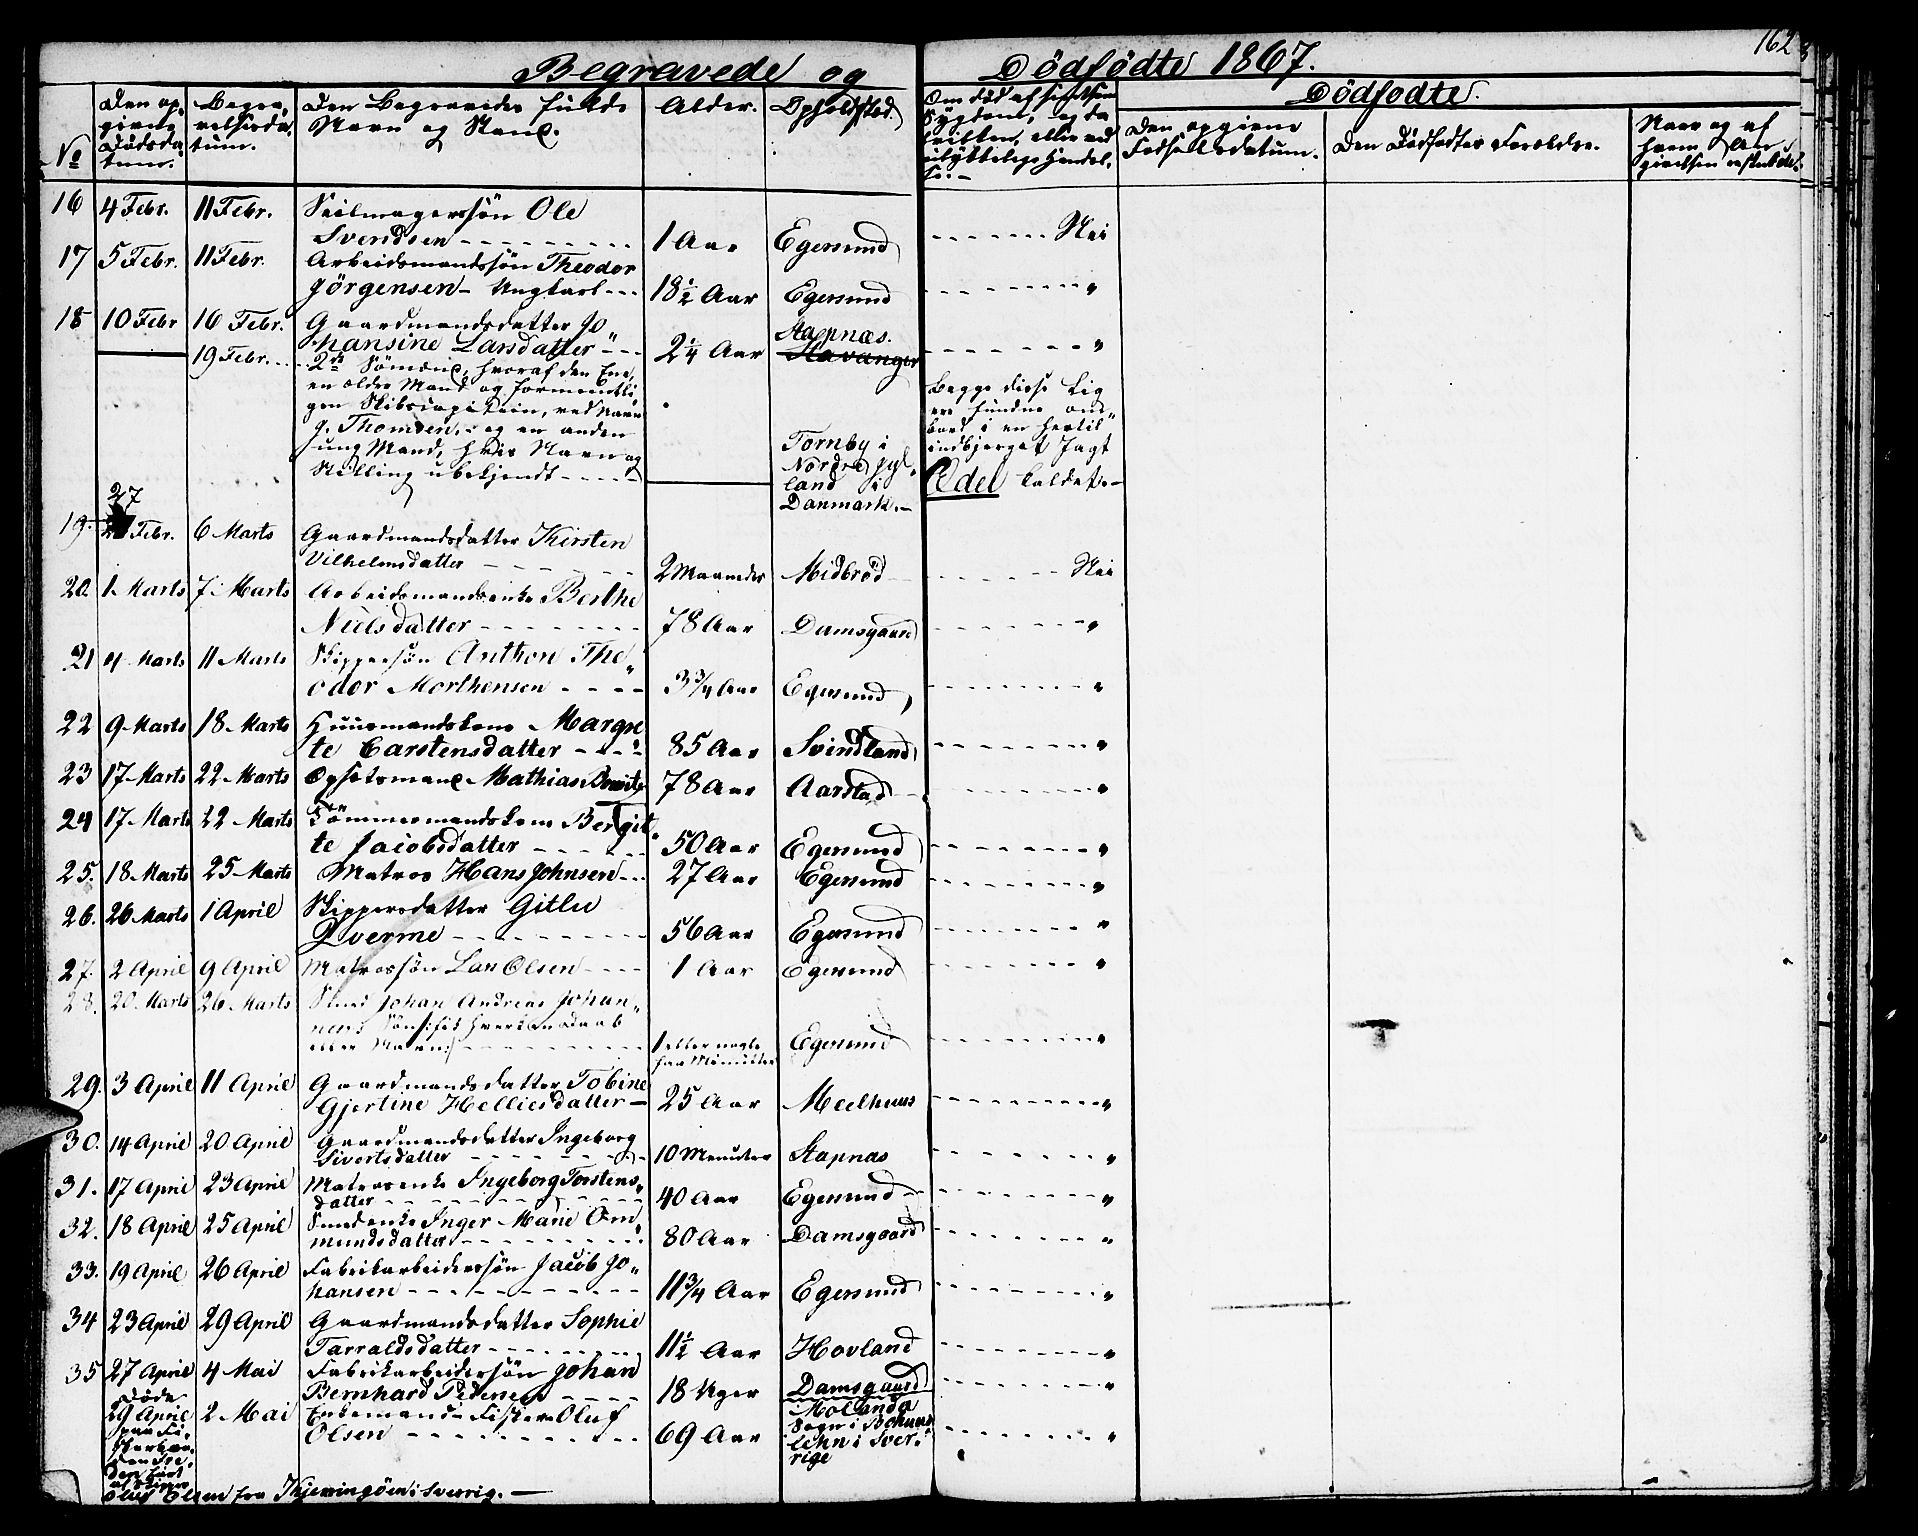 Begravede og Dödfödte 1867.
162
No
Den op-
givne
Dödsda
tum.
Begra-
velsesda-
tum.
Den Begravedes fulde
Navn og Stand.
Alder.
Opholdssted.
Om död af smitsom
Sygdom, og da
hvilken, eller ved
ulykkelige Hendel-
se.
Dödfödte.
Den opgivne
Födselsdatum.
Den Dödfödtes Foreldre.
Naar og af
hvem An-
givelsen er skeet
16 4 Febr. 11 Febr. Seilmagersön Ole
Svendsen 1 Aar Egersund Nei
17 5 Febr. 11 Febr. Arbeidsmandssön Theodor
Jörgensen - Ungkarl 18½ Aar Egersund "
18 10 Febr 16 Febr. Gaardmandsdatter Jo„
hansine Larsdatter 2¼ Aar Stapnæs. Stavanger "
19 Febr. 2de Sömænd, hvoraf den Ene,
en older Mand og formentli„
gen Skibscapitain, ved Navn
J. Thomsen, og en anden
ung Mand, hvis Navn og
Stilling ubekjendt
Tornby i
Nordre Jyl„
land i
Danmark.
Begge disse Lig
ere fundne om„
bord i en hertil
indbjerget Jagt
Ædel kaldet
19. 27 Febr. 6 Marts Gaardmandsdatter Kirsten
Vilhelmsdatter 2 Maaneder Midbröd Nei
20. 1 Marts 7 Marts Arbeidsmandsenke Berthe
Nielsdatter 78 Aar Damsgaard "
21 4 Marts 11 Marts Skippersön Anthon The„
odor Morthensen 3¾ Aar Egersund "
22 9 Marts 18 Marts Huusmandskone Margre
te Carstensdatter 85 Aar Svindland "
23 17 Marts 22 Marts Opsidsmand Mathias 78 Aar Aarstad "
24 17 Marts 22 Marts Tömmermandskone Bergit„
te Jacobsdatter 50 Aar Egersund "
25. 18 Marts 25 Marts Matros Hans Johnsen 27 Aar Egersund "
26. 26 Marts 1 April Skippersdatter Gitlu
Qverme 56 Aar Egersund "
27. 2 April 9 April Matrossön Lars Olsen 1 Aar Egersund "
28. 20 Marts 26 Marts Smed Johan Andreas Johan„
nesens Sön: fik hverken Daab
eller Navn 1 eller nogle
faa Minutter Egersund "
29. 3 April 11 April Gaardmandsdatter Tobine
Gjertine Helliesdatter 25 Aar Meelhuus "
30. 14 April 20 April Gaardmandsdatter Ingeborg
Sivertsdatter 10 Minuter Stapnas "
31. 17 April 23 April Matrosenke Ingeborg Torstens„
datter 40 Aar Egersund "
32. 18 April 25 April Smedenke Inger Marie Om„
mundsdatter 80 Aar Damsgaard "
33. 19 April 26 April Fabrikarbeidersön Jacob Jo„
hansen 11¾ Aar Egersund "
34 23 April 29 April Gaardmandsdatter Sophie
Tarraldsdatter 11½ Aar Hovland "
35 27 April 4 Mai Fabrikarbeidersön Johan
Bernhard Pedersen 18 Uger Damsgaard "
Döde
29 April 2 Mai Enkemand Fisker Oluf
Olsen 69 Aar Molanda
Sogn i Bohuus
lehn i Sver„
rige "
paa Fi-
Olus Olsen fra Kjerringöen i Sverrig.